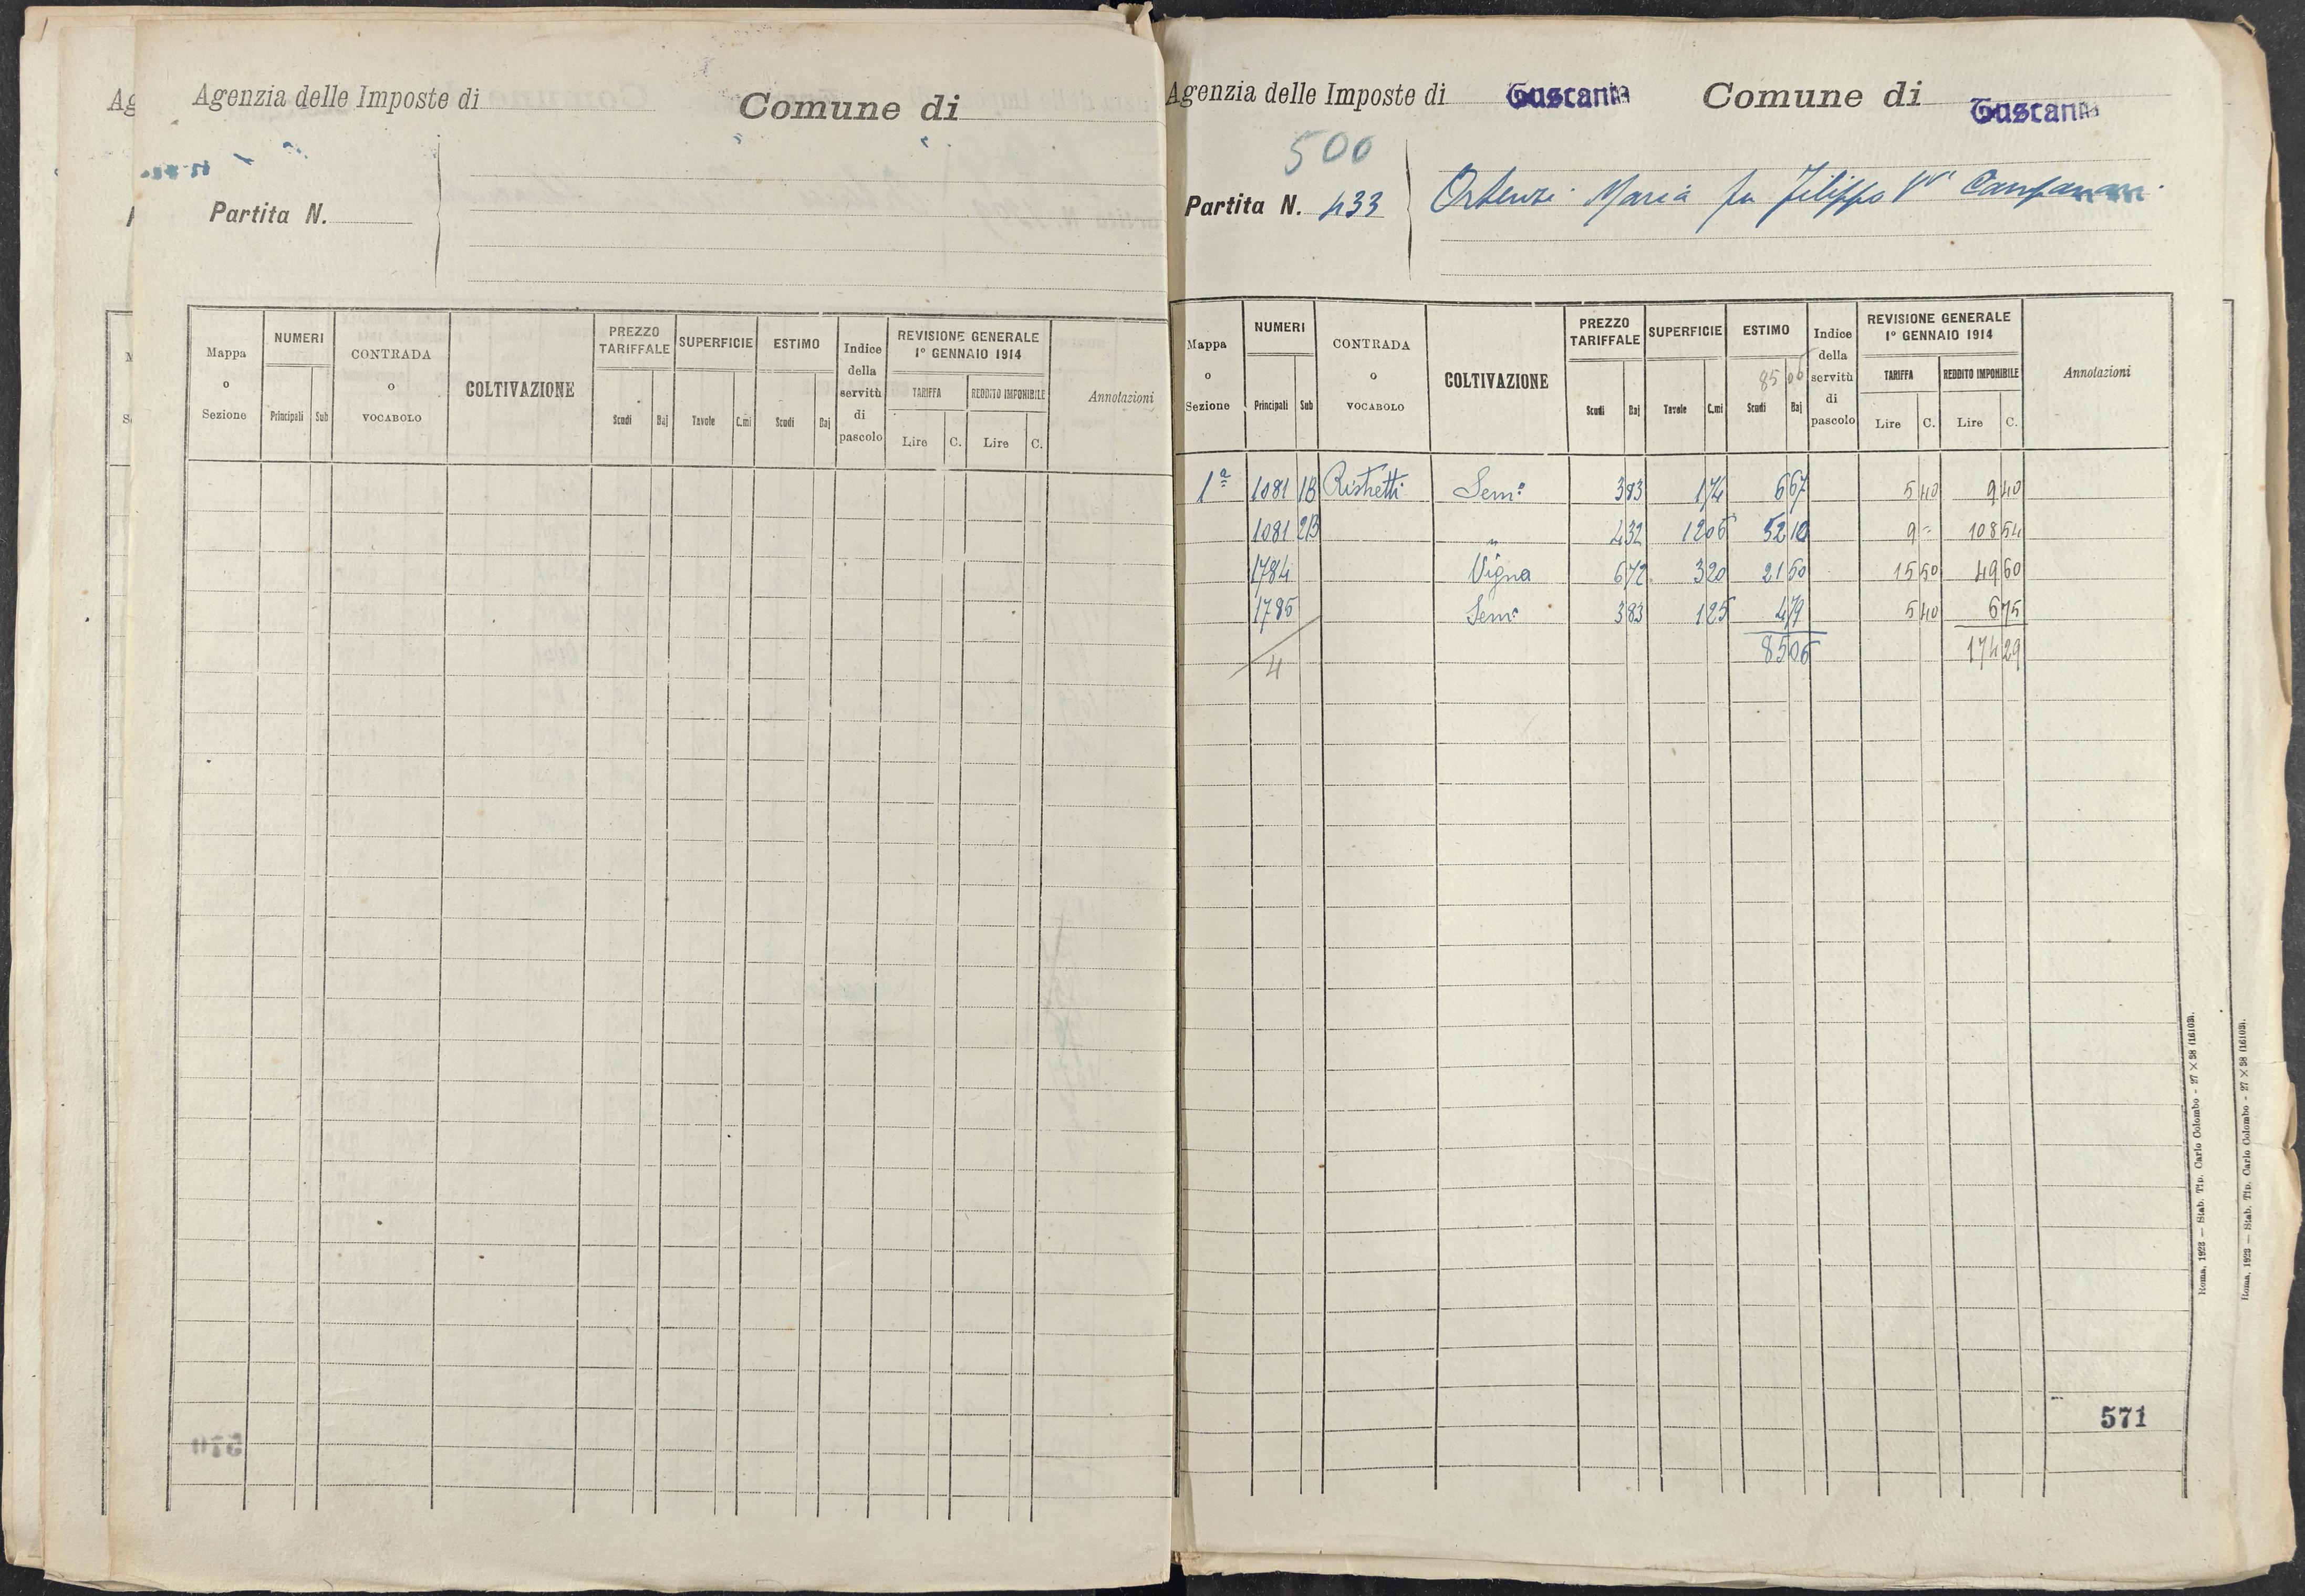 Ag
Agenzia delle Imposte di
Comune di
Partita N.
Mappa o Sezione
NUMERI
Principali
Sub
CONTRADA O VOCABOLO
COLTIVAZIONE
PREZZO TARIFFALE
Scudi
Baj
SUPERFICIE
Tavole
C.mi
ESTIMO
Scudi
Baj
Indice della servitù di pascolo
REVISIONE GENERALE
1° GENNAIO 1914
TARIFFA
REDDITO IMPONIBILE
Lire
C.
Lire
C.
Annotazioni
Agenzia delle Imposte di Tuscania Comune di Tuscania
500
Partita N. 433 Ortensi Maria fu Filippo
Mappa o Sezione
NUMERI
Principali
Sub
CONTRADA O VOCABOLO
COLTIVAZIONE
PREZZO TARIFFALE
Scudi
Baj
SUPERFICIE
Tavole
C.mi
ESTIMO
85 06
Scudi
Baj
Indice della servitù di pascolo
REVISIONE GENERALE
1° GENNAIO 1914
TARIFFA
REDDITO IMPONIBILE
Lire
C.
Lire
C.
Annotazioni
1ª 1081 1B Rishetti Sem.º 3 83 1 74 6 67 5 40 9 40
1081 2B " 4 32 12 06 52 10 9 = 108 54
1784 Vigna 6 72 3 20 21 50 15 50 49 60
1785 Sem.º 3 83 1 25 4 79 5 40 6 75
4 85 06 174 29
571
Roma, 1923 — Stab. Tip. Carlo Colombo - 27 × 38 (16103).
Roma, 1923 — Stab. Tip. Carlo Colombo - 27 × 38 (16103).